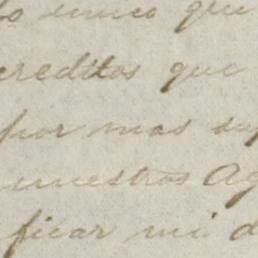 lo unico que
creditos que
por mas su
nuestros Ag
ficar mi d